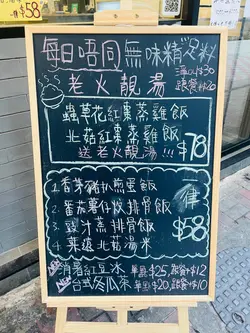 每日唔同無味精足料
老火靚湯
單叫$30
跟餐$20
蟲草花紅棗蒸雞飯
北菇紅棗蒸雞飯
$78
送老火靚湯!!!
1.香芽豬扒煎蛋飯
2.番茄薯仔炆排骨飯
3.豉汁蒸排骨飯
4.菜遠北菇湯米
一律
$58
消暑紅豆冰 單點$25,跟餐$12
台式冬瓜茶 單點$20,跟餐$10
$58